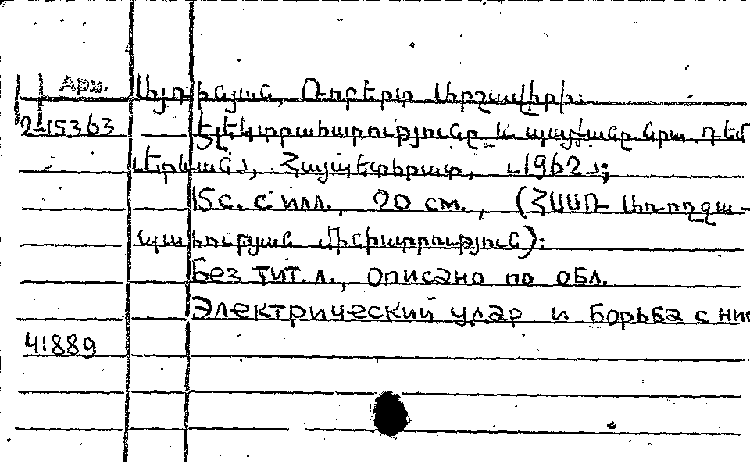 Арм. Այդինյան, Ռոբերտ Արշավիրի.
2-15363 Էլեկտրահարությունը և պայքարը նրա դեմ
Երևան, Հայպետհրատ, 1962;
15 с. с илл., 20 см., (ՀՍՍՌ Առողջա-
պահության մինիստրություն):
Без тит. л., описано по обл.
Электрический удар и борьба с ним
41889